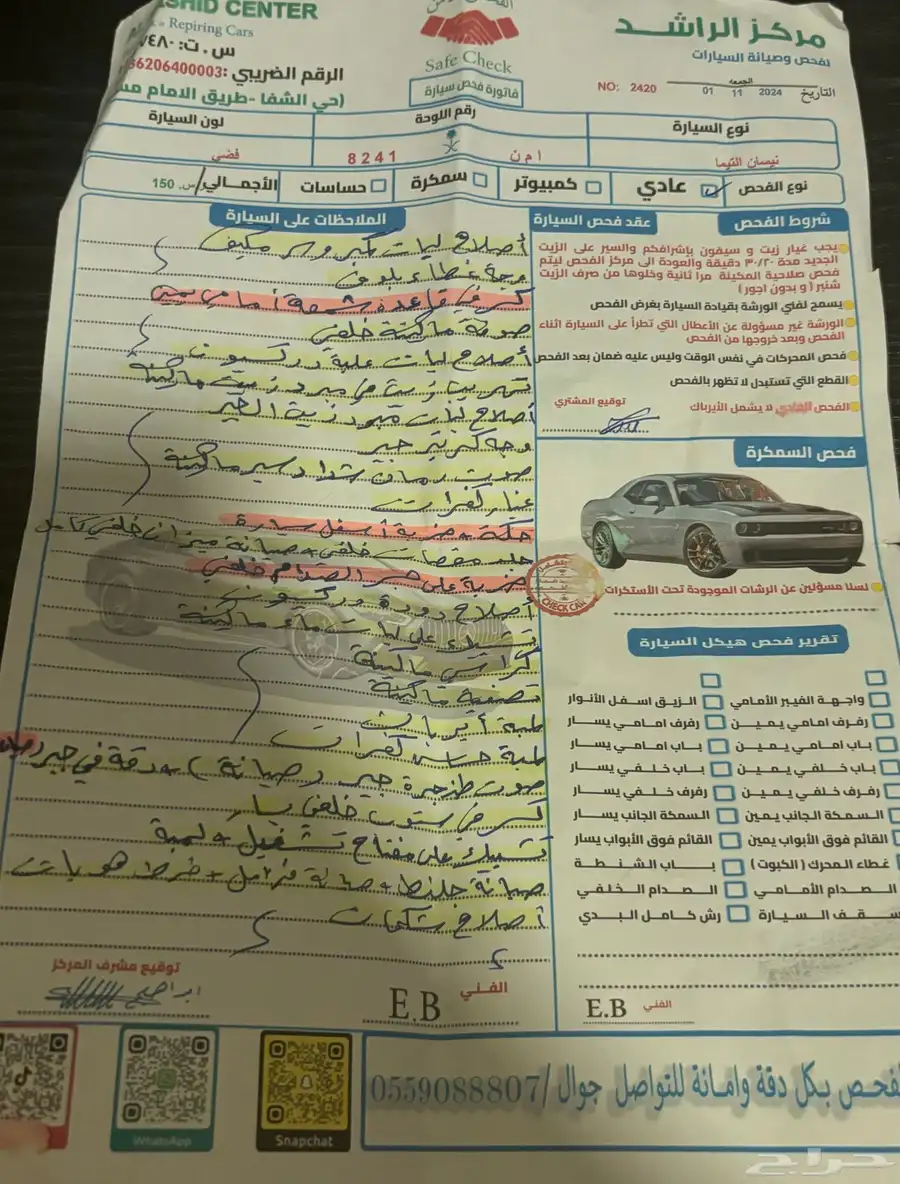 SHID CENTER
Repiring Cars
س . ت:
الرقم الضريبي :36206400003
(حي الشفا -طريق الامام
Safe Check
فاتورة فحص سيارة
مركز الراشد
لفحص وصيانة السيارات
NO: 2420
التاريخ
الجمعه
01 11 2024
نوع السيارة
رقم اللوحة
لون السيارة
نيسان التيما
ا م ن
8241
فضي
نوع الفحص
عادي
كمبيوتر
سمكرة
حساسات
الأجمالي/س. 150
شروط الفحص
عقد فحص السيارة
الملاحظات على السيارة
يجب غيار زيت و سيفون بإشرافكم والسير على الزيت
الجديد مدة ٣٠/٢٠ دقيقة والعودة الى مركز الفحص ليتم
فحص صلاحية المكينة مرا ثانية وخلوها من صرف الزيت
شنبر ( و بدون اجور )
يسمح لفني الورشة بقيادة السيارة بغرض الفحص
الورشة غير مسؤولة عن الأعطال التي تطرأ على السيارة اثناء
الفحص وبعد خروجها من الفحص
فحص المحركات في نفس الوقت وليس عليه ضمان بعد الفحص
القطع التي تستبدل لا تظهر بالفحص
الفحص العادي لا يشمل الأيرباك
توقيع المشتري
أصلاح ليات مكيف
وجه غطاء بلوف
كرسي قاعدة شمعة أمامي يمين
صوفة ماكينة خلفي
أصلاح ليات علبة دركسون
تهريب زيت من مبرد زيت ماكينة
أصلاح ليات مبرد زيت القير
وجه كرتير جير
صوت رمان شداد سير ماكينة
كفرات
حكة + ضربة أسفل سيارة
جلد مقصات خلفي + صيانة ميزان خلفي كامل
ضربة على جسر الصدام خلفي
أصلاح دودة دركسون
على ليات ماء ماكينة
كراسي ماكينة
تصفية ماكينة
لمبة أيرباق
لمبة حساس كفرات
كرسي خلفي يسار
تشييك على مفتاح تشغيل + لمبة
صيانة جلنط + صيانة فرامل + خرط هوبات
أصلاح شكمان
فحص السمكرة
لسنا مسؤلين عن الرشات الموجودة تحت الأستكرات
CHECK CAR
تقرير فحص هيكل السيارة
واجهة الفيبر الأمامي
الزيق اسفل الأنوار
رفرف امامي يمين
رفرف امامي يسار
باب امامي يمين
باب امامي يسار
باب خلفي يمين
باب خلفي يسار
رفرف خلفي يمين
رفرف خلفي يسار
السمكة الجانب يمين
السمكة الجانب يسار
القائم فوق الأبواب يمين
القائم فوق الأبواب يسار
غطاء المحرك ( الكبوت )
باب الشنطة
الصدام الأمامي
الصدام الخلفي
سقف السيارة
رش كامل البدي
توقيع مشرف المركز
ابراهيم
الفني
E.B
الفني
E.B
الفحص بكل دقة وامانة للتواصل جوال /0559088807
WhatsApp
Snapchat
حراج